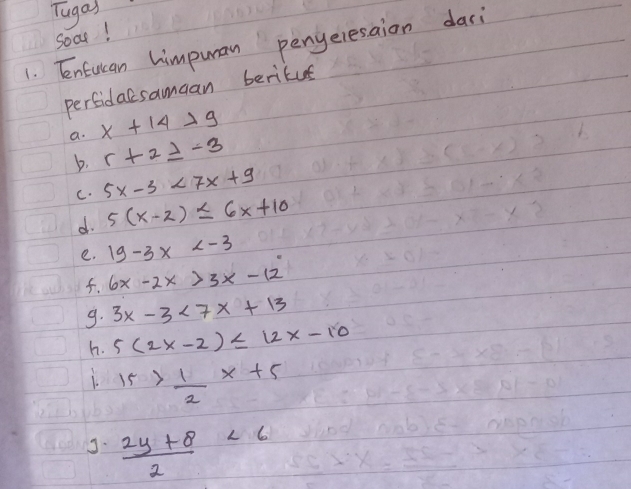 Tugas
Soal !
1. Tentukan himpunan penyelesaian dari
pertidaksamaan berikut
a. x + 14 > 9
b. r + 2 ≥ -3
c. 5x - 3 < 7x + 9
d. 5 (x - 2) ≤ 6x + 10
e. 19 - 3x < -3
f. 6x - 2x > 3x - 12
g. 3x - 3 < 7x + 13
h. 5 (2x - 2) ≤ 12x - 10
i. 15 > 1/2 x + 5
j. (2y + 8)/2 < 6